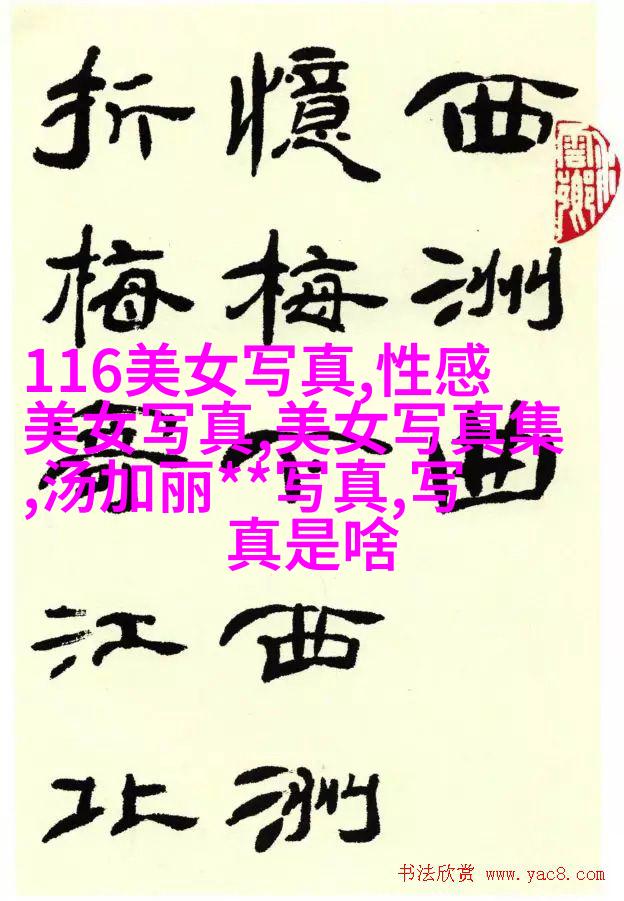 西洲曲
憶梅下西洲
折梅寄江北
116美女写真,性感
美女写真,美女写真集
,汤加丽**写真,写
真是啥
书法欣赏 www.yac8.com